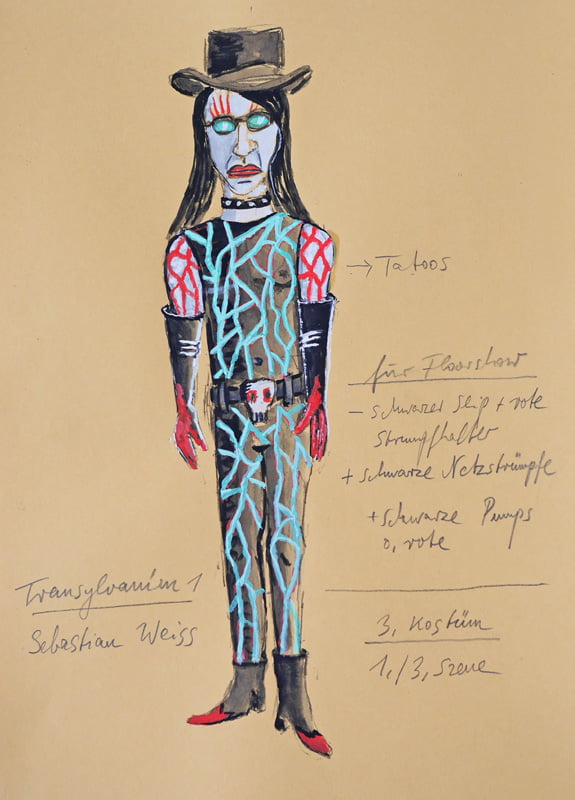 → Tatoos
für Floorshow
- schwarzer Slip + rote
Strumpfhalter
+ schwarze Netzstrümpfe
+ schwarze Pumps
o. rote
3. Kostüm
1./3. Szene
Transylvanien 1
Sebastian Weiss